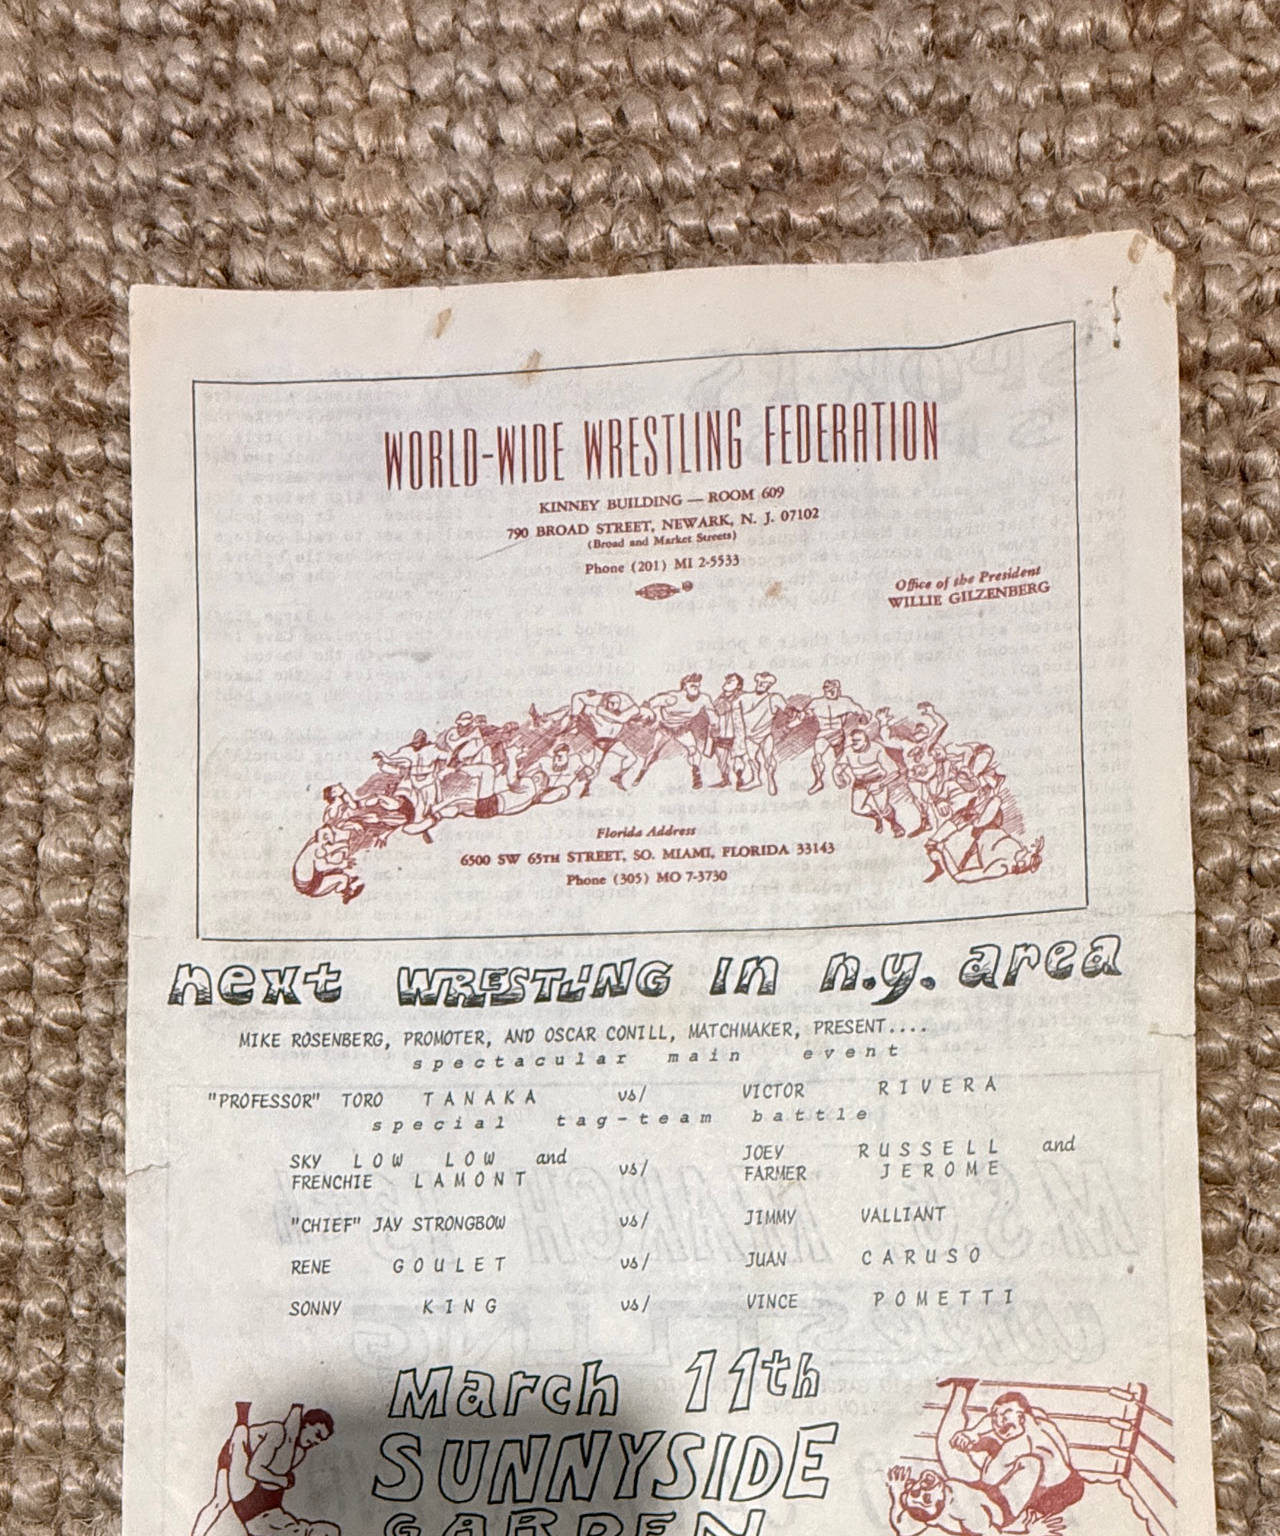 WORLD-WIDE WRESTLING FEDERATION
KINNEY BUILDING — ROOM 609
790 BROAD STREET, NEWARK, N. J. 07102
(Broad and Market Streets)
Phone (201) MI 2-5533
Office of the President
WILLIE GILZENBERG
Florida Address
6500 SW 65TH STREET, SO. MIAMI, FLORIDA 33143
Phone (305) MO 7-3730
next WRESTLING IN n.y. area
MIKE ROSENBERG, PROMOTER, AND OSCAR CONILL, MATCHMAKER, PRESENT....
spectacular main event
"PROFESSOR" TORO TANAKA vs/ VICTOR RIVERA
special tag-team battle
SKY LOW LOW and JOEY RUSSELL and
FRENCHIE LAMONT vs/ FARMER JEROME
"CHIEF" JAY STRONGBOW vs/ JIMMY VALLIANT
RENE GOULET vs/ JUAN CARUSO
SONNY KING vs/ VINCE POMETTI
March 11th
SUNNYSIDE
GARDEN